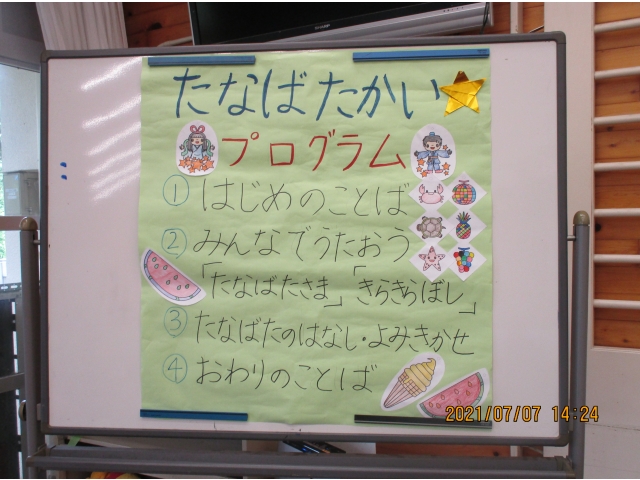 たなばたかい
プログラム
① はじめのことば
② みんなでうたおう
「たなばたさま」「きらきらぼし」
③ たなばたのはなし・よみきかせ
④ おわりのことば
2021/07/07 14:24